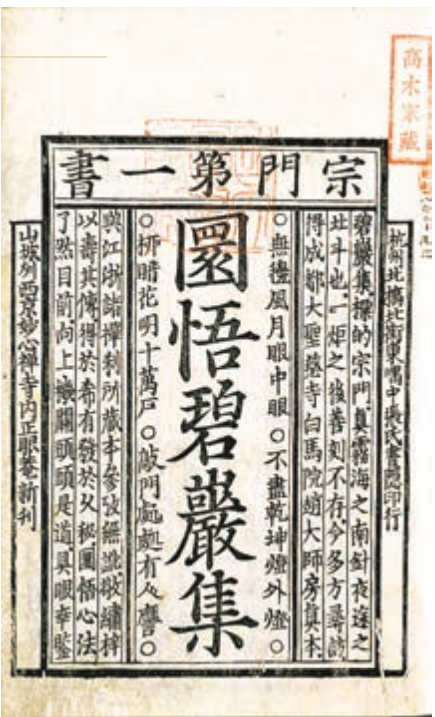 高木家藏
宗門第一書
杭州北橋北街東嵎中張氏書隱印行
碧巖集標的宗門真霧海之南針夜途之
北斗也一炬之後善刻不存今多方尋訪
得成都大聖慈寺白馬院趙大師房真本
○無邊風月眼中眼○不盡乾坤燈外燈○
圜悟碧巖集
○柳暗花明十萬戶○敲門處處有人譍○
與江浙諸禪刹所藏本參攷無訛敬繡梓
以壽其傳得於希有發於久秘圜悟心法
了然目前向上機關頭頭是道具眼幸鑒
山城列西京妙心禪寺內正眼菴新刊